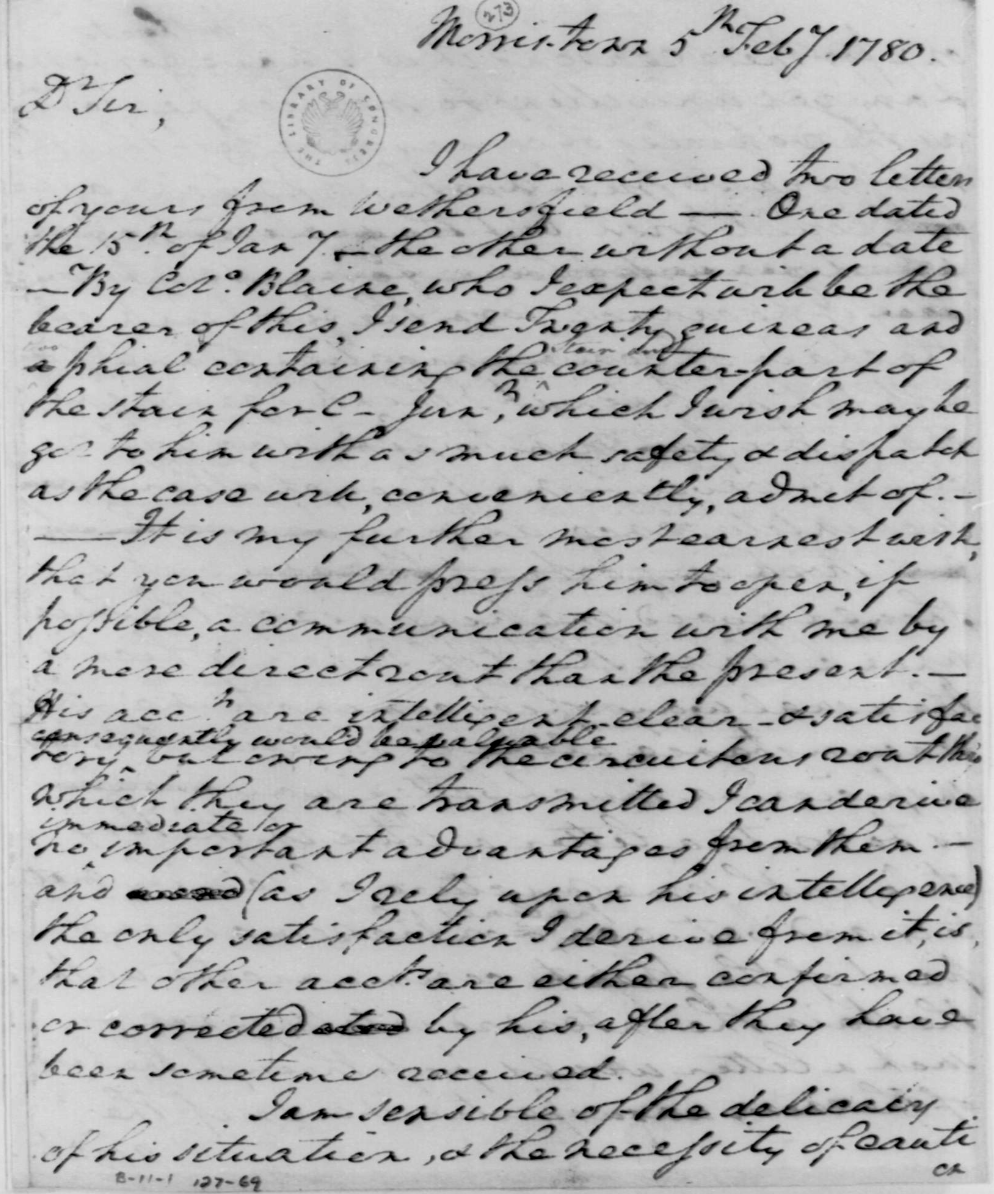 273
Morris-town 5th Feby 1780.
Dr Sir,
THE LIBRARY OF CONGRESS
I have received two letters
of yours from Wethersfield — One dated
the 15th of Jany. – the other without a date
– By Colo. Blaine, who I expect will be the
bearer of this, I send Twenty guineas and
two
a phial containing the counter-part of
stain and
the stain for C– Junr, which I wish may be
got to him with as much safety & dispatch
as the case will, conveniently, admit of. –
— It is my further most earnest wish,
that you would press him to open, if
possible, a communication with me by
a more direct rout than the present. –
His accts are intelligent, clear – & satisfac
consequently would be valuable
tory, but owing to the circuitous rout thro
which they are transmitted I can derive
immediate or
no important advantages from them –
and (as I rely upon his intelligence)
the only satisfaction I derive from it, is,
that other accts. are either confirmed
or corrected by his, after they have
been sometime received.
I am sensible of the delicacy
of his situation, & the necessity of cauti
on
B-11-1 127-69